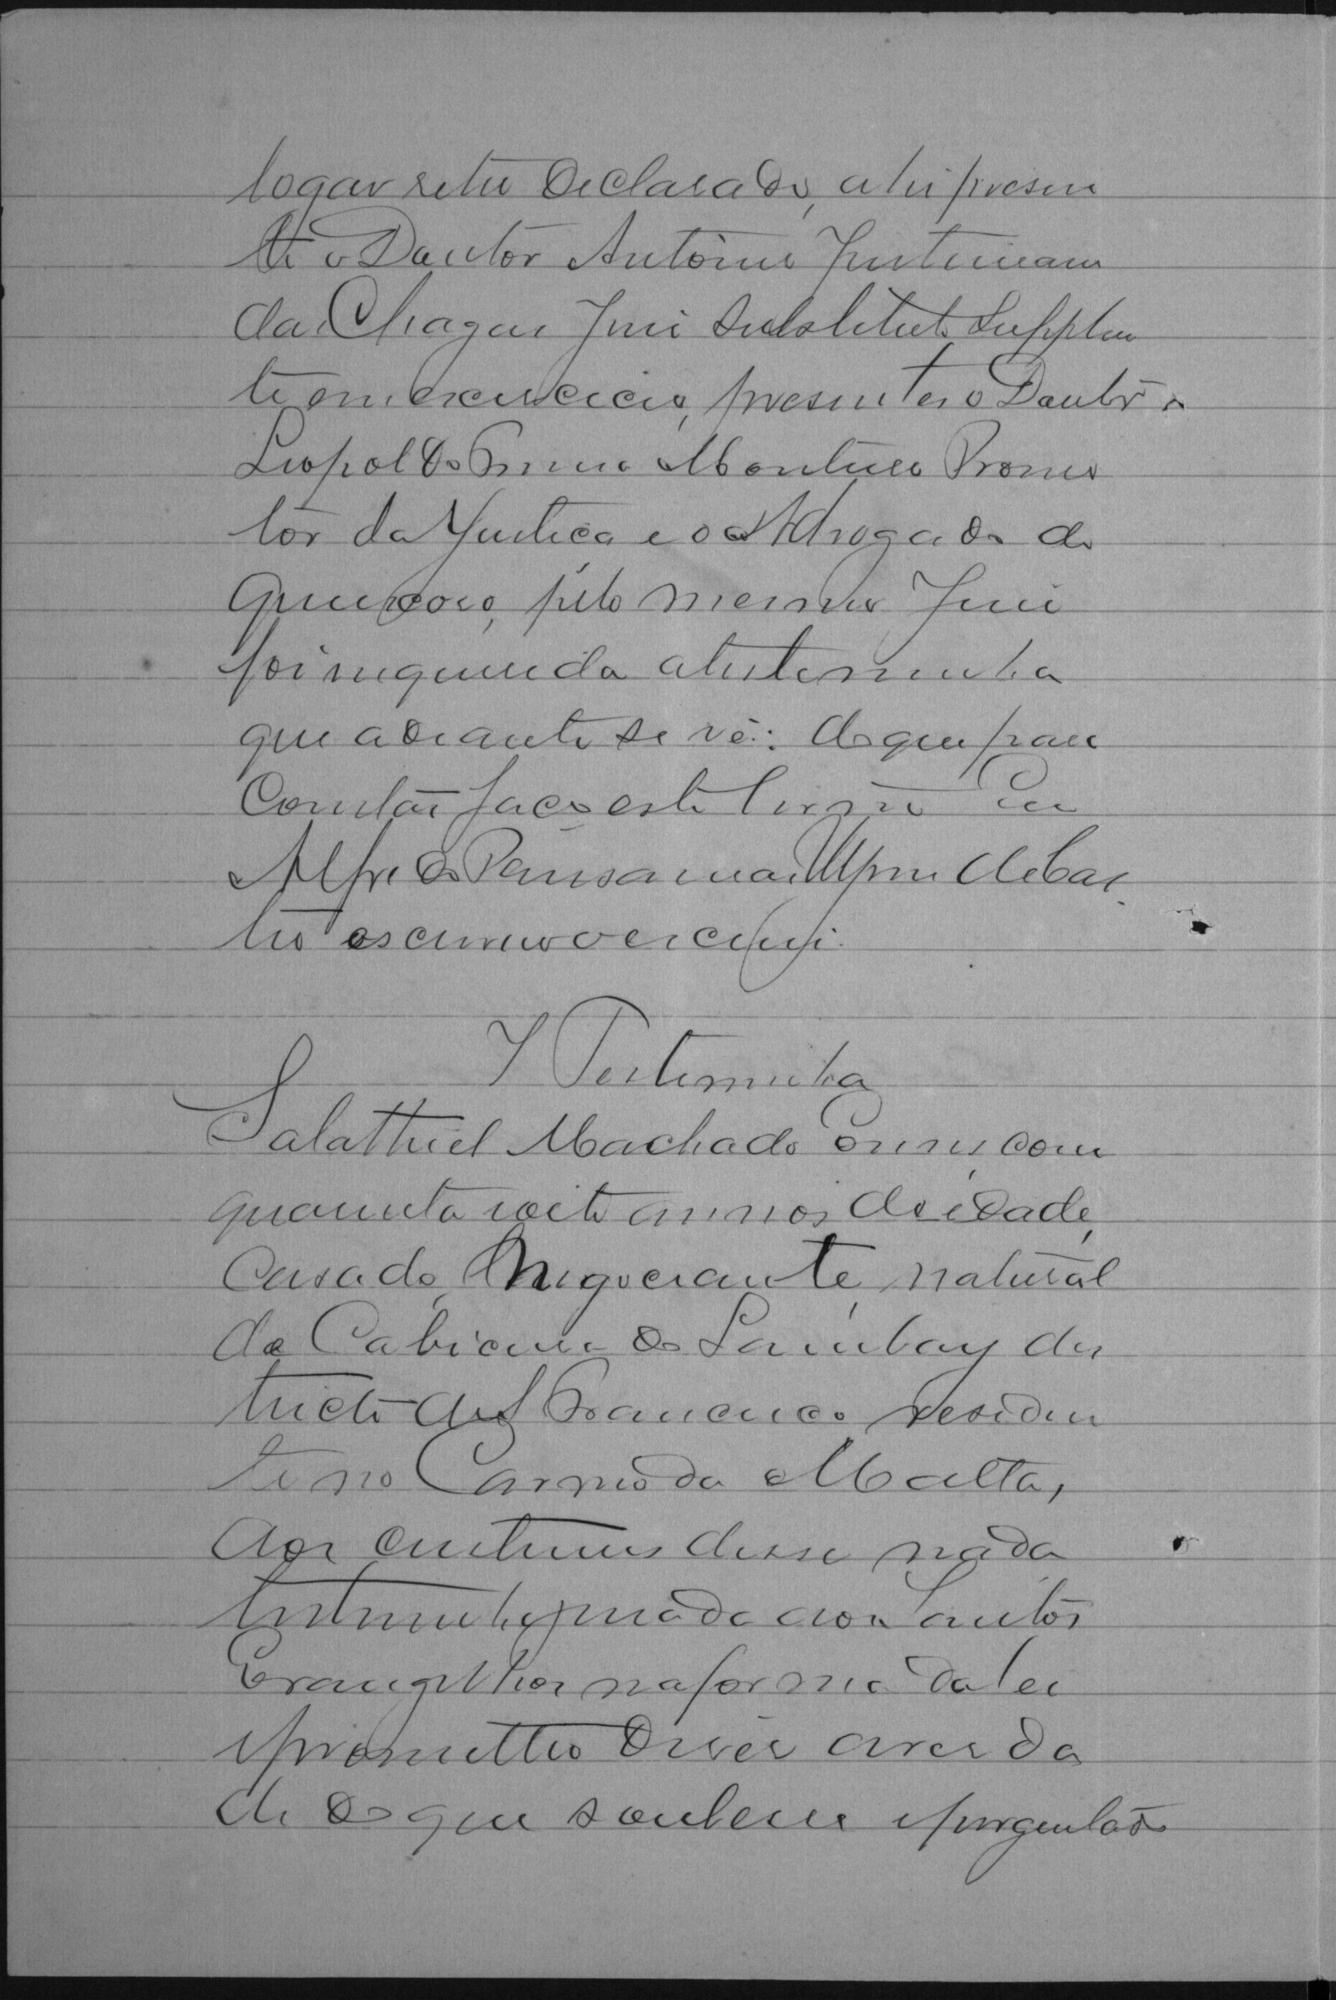 logar retro declarado, ahi presen
te o Doutor Antonio Justiniano
das Chagas Juiz substituto supplen
te em exercicio, presentes o Doutor
Leopoldo Monteiro Promo
tor da Justiça e o Advogado do
queixoso, pelo mesmo Juiz
foi inquerida a testemunha
que adiante se vê: do que para
constar faço este termo Eu
Alfredo de Cas
tro escrivão o escrevi.
I Testemunha
Salathiel Machado com
quarenta e oito annos de idade,
casado, negociante, natural
do districto de S Francisco residen
te no Carmo da Matta,
aos custumes disse nada
testemunha jurada aos Santos
Evangelhos na forma da lei
e prometteo diser a verda
de do que soubesse e perguntado